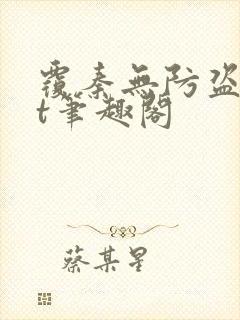 覆秦無防盜
t筆趣閣
蔡某星